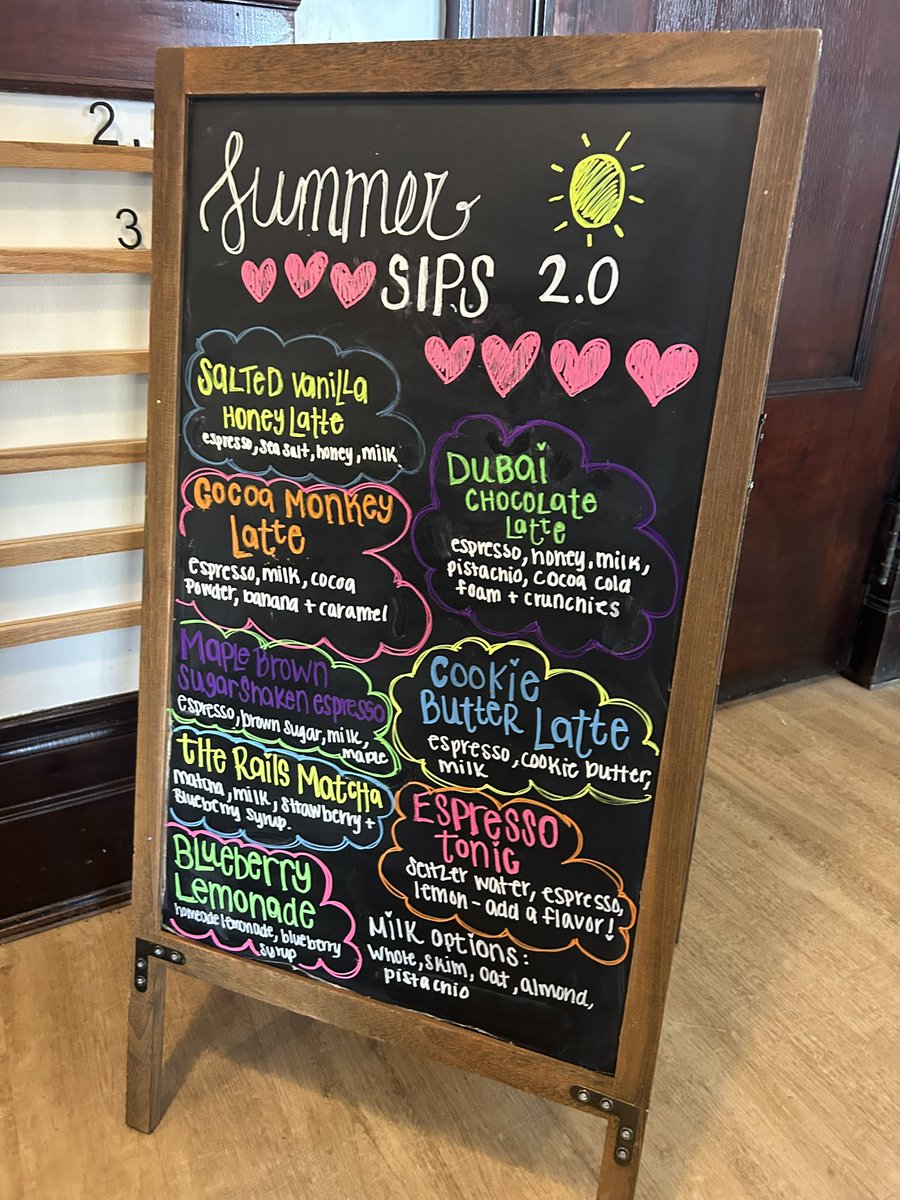 2
3
Summer
SIPS 2.0
Salted Vanilla
Honey Latte
espresso, sea salt, honey, milk
Cocoa Monkey
Latte
espresso, milk, cocoa
powder, banana + caramel
Maple Brown
Sugar Shaken espresso
espresso, brown sugar, milk,
maple
the Rails Matcha
matcha, milk, strawberry +
Blueberry syrup.
Blueberry
Lemonade
homeade lemonade, blueberry
syrup
Dubai
Chocolate
Latte
espresso, honey, milk,
pistachio, cocoa cold
foam + crunchies
Cookie
Butter Latte
espresso, cookie butter,
milk
Espresso
tonic
Seltzer water, espresso,
lemon - add a flavor!
Milk options:
Whole, skim, oat, almond,
pistachio